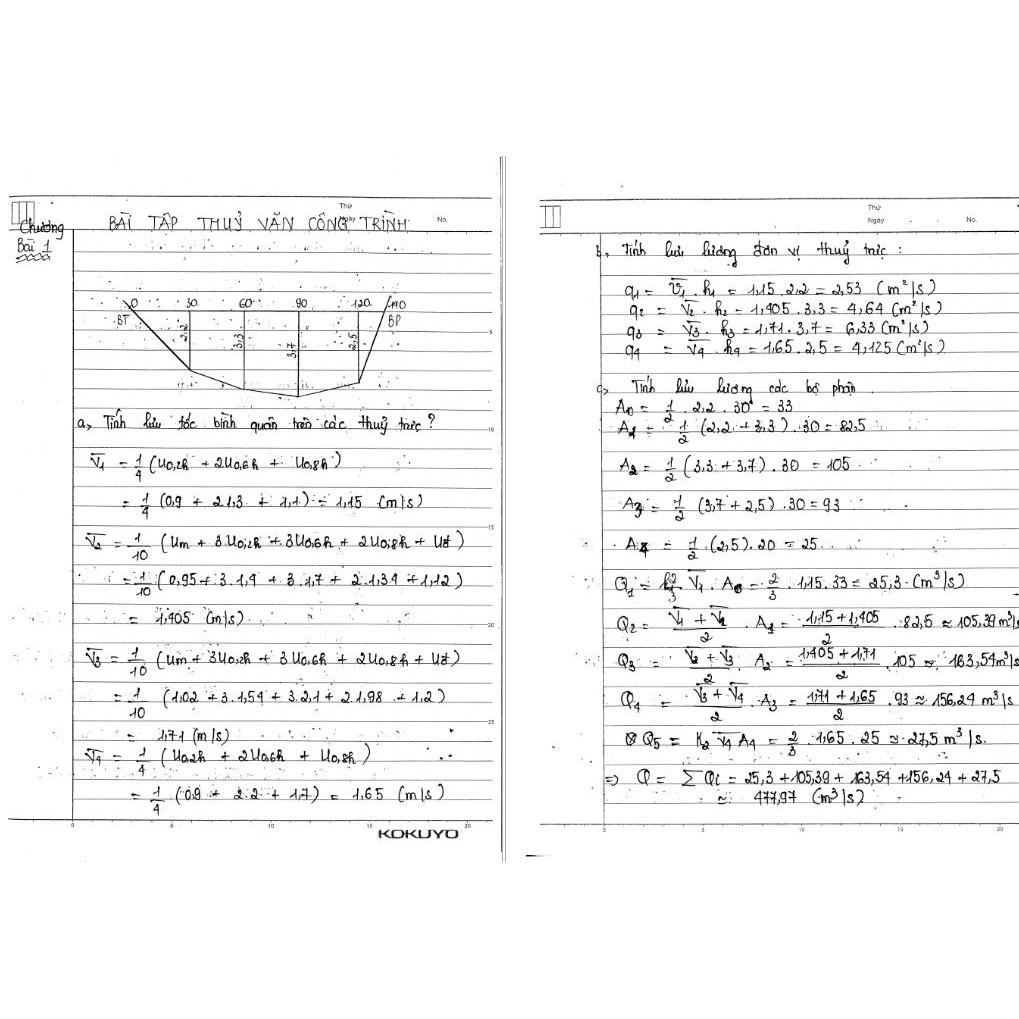 Thứ
Ngày
No.
Chương
BÀI TẬP THUỶ VĂN CÔNG TRÌNH
Bài 1
0 30 60 90 120 140
BT BP
2,2 3,3 3,7 2,5
a, Tính lưu tốc bình quân trên các thuỷ trực ?
V̅1 = 1/4 (U0,2h + 2U0,6h + U0,8h)
= 1/4 (0,9 + 2.1,3 + 1,1) = 1,15 (m/s)
V̅2 = 1/10 (Um + 3U0,2h + 3U0,6h + 2U0,8h + Uđ)
= 1/10 (0,95 + 3.1,4 + 3.1,7 + 2.1,34 + 1,12)
= 1,405 (m/s)
V̅3 = 1/10 (Um + 3U0,2h + 3U0,6h + 2U0,8h + Uđ)
= 1/10 (1,02 + 3.1,54 + 3.2,1 + 2.1,98 + 1,2)
= 1,71 (m/s)
V̅4 = 1/4 (U0,2h + 2U0,6h + U0,8h)
= 1/4 (0,9 + 2.2 + 1,7) = 1,65 (m/s)
0 5 10 15 20
KOKUYO
Thứ
Ngày
No.
b, Tính lưu lượng đơn vị thuỷ trực :
q1 = V̅1 . h1 = 1,15 . 2,2 = 2,53 (m²/s)
q2 = V̅2 . h2 = 1,405 . 3,3 = 4,64 (m²/s)
q3 = V̅3 . h3 = 1,71 . 3,7 = 6,33 (m²/s)
q4 = V̅4 . h4 = 1,65 . 2,5 = 4,125 (m²/s)
c, Tính lưu lượng các bộ phận
A0 = 1/2 . 2,2 . 30 = 33
A1 = 1/2 (2,2 + 3,3) . 30 = 82,5
A2 = 1/2 (3,3 + 3,7) . 30 = 105
A3 = 1/2 (3,7 + 2,5) . 30 = 93
A4 = 1/2 . (2,5) . 20 = 25
Q1 = 2/3 V̅1 . A0 = 2/3 . 1,15 . 33 = 25,3 (m³/s)
Q2 = (V̅1 + V̅2)/2 . A1 = (1,15 + 1,405)/2 . 82,5 ≈ 105,39 m³/s
Q3 = (V̅2 + V̅3)/2 . A2 = (1,405 + 1,71)/2 . 105 ≈ 163,54 m³/s
Q4 = (V̅3 + V̅4)/2 . A3 = (1,71 + 1,65)/2 . 93 ≈ 156,24 m³/s
Q5 = K2 V̅4 A4 = 2/3 . 1,65 . 25 ≈ 27,5 m³/s.
=> Q = Σ Qi = 25,3 + 105,39 + 163,54 + 156,24 + 27,5
≈ 477,97 (m³/s)
0 5 10 15 20